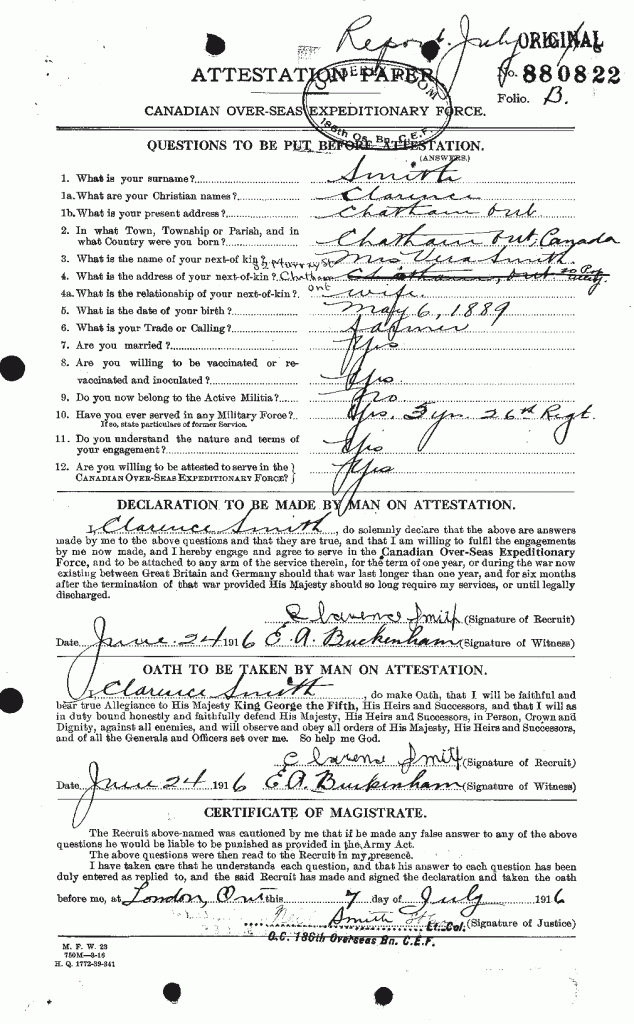 Report July
ORIGINAL
ATTESTATION PAPER.
No. 880822
Folio. B.
CANADIAN OVER-SEAS EXPEDITIONARY FORCE.
186th Os. Bn. C.E.F.
QUESTIONS TO BE PUT BEFORE ATTESTATION.
(ANSWERS.)
1. What is your surname? Smith
1a. What are your Christian names? Clarence
1b. What is your present address? Chatham Ont
2. In what Town, Township or Parish, and in
what Country were you born? Chatham Ont, Canada
3. What is the name of your next-of kin? Mrs Vera Smith.
Murray St
4. What is the address of your next-of-kin? Chatham Ont Chatham, Ont
4a. What is the relationship of your next-of-kin? wife.
5. What is the date of your birth? May 6, 1889
6. What is your Trade or Calling? farmer
7. Are you married? Yes
8. Are you willing to be vaccinated or re-
vaccinated and inoculated? Yes.
9. Do you now belong to the Active Militia? No
10. Have you ever served in any Military Force? Yes. 3 yr. 26th Regt.
If so, state particulars of former Service.
11. Do you understand the nature and terms of
your engagement? Yes
12. Are you willing to be attested to serve in the
CANADIAN OVER-SEAS EXPEDITIONARY FORCE? Yes
DECLARATION TO BE MADE BY MAN ON ATTESTATION.
I, Clarence Smith, do solemnly declare that the above are answers
made by me to the above questions and that they are true, and that I am willing to fulfil the engagements
by me now made, and I hereby engage and agree to serve in the Canadian Over-Seas Expeditionary
Force, and to be attached to any arm of the service therein, for the term of one year, or during the war now
existing between Great Britain and Germany should that war last longer than one year, and for six months
after the termination of that war provided His Majesty should so long require my services, or until legally
discharged.
Clarence Smith (Signature of Recruit)
Date June 24 1916 E. A. Buckenham (Signature of Witness)
OATH TO BE TAKEN BY MAN ON ATTESTATION.
I, Clarence Smith, do make Oath, that I will be faithful and
bear true Allegiance to His Majesty King George the Fifth, His Heirs and Successors, and that I will as
in duty bound honestly and faithfully defend His Majesty, His Heirs and Successors, in Person, Crown and
Dignity, against all enemies, and will observe and obey all orders of His Majesty, His Heirs and Successors,
and of all the Generals and Officers set over me. So help me God.
Clarence Smith (Signature of Recruit)
Date June 24 1916 E A. Buckenham (Signature of Witness)
CERTIFICATE OF MAGISTRATE.
The Recruit above-named was cautioned by me that if he made any false answer to any of the above
questions he would be liable to be punished as provided in the Army Act.
The above questions were then read to the Recruit in my presence.
I have taken care that he understands each question, and that his answer to each question has been
duly entered as replied to, and the said Recruit has made and signed the declaration and taken the oath
before me, at London, Ont this 7 day of July 1916
Smith Lt. Col. (Signature of Justice)
O.C. 186th Overseas Bn. C.E.F.
M. F. W. 23
750M—3-16
H. Q. 1772-39-341